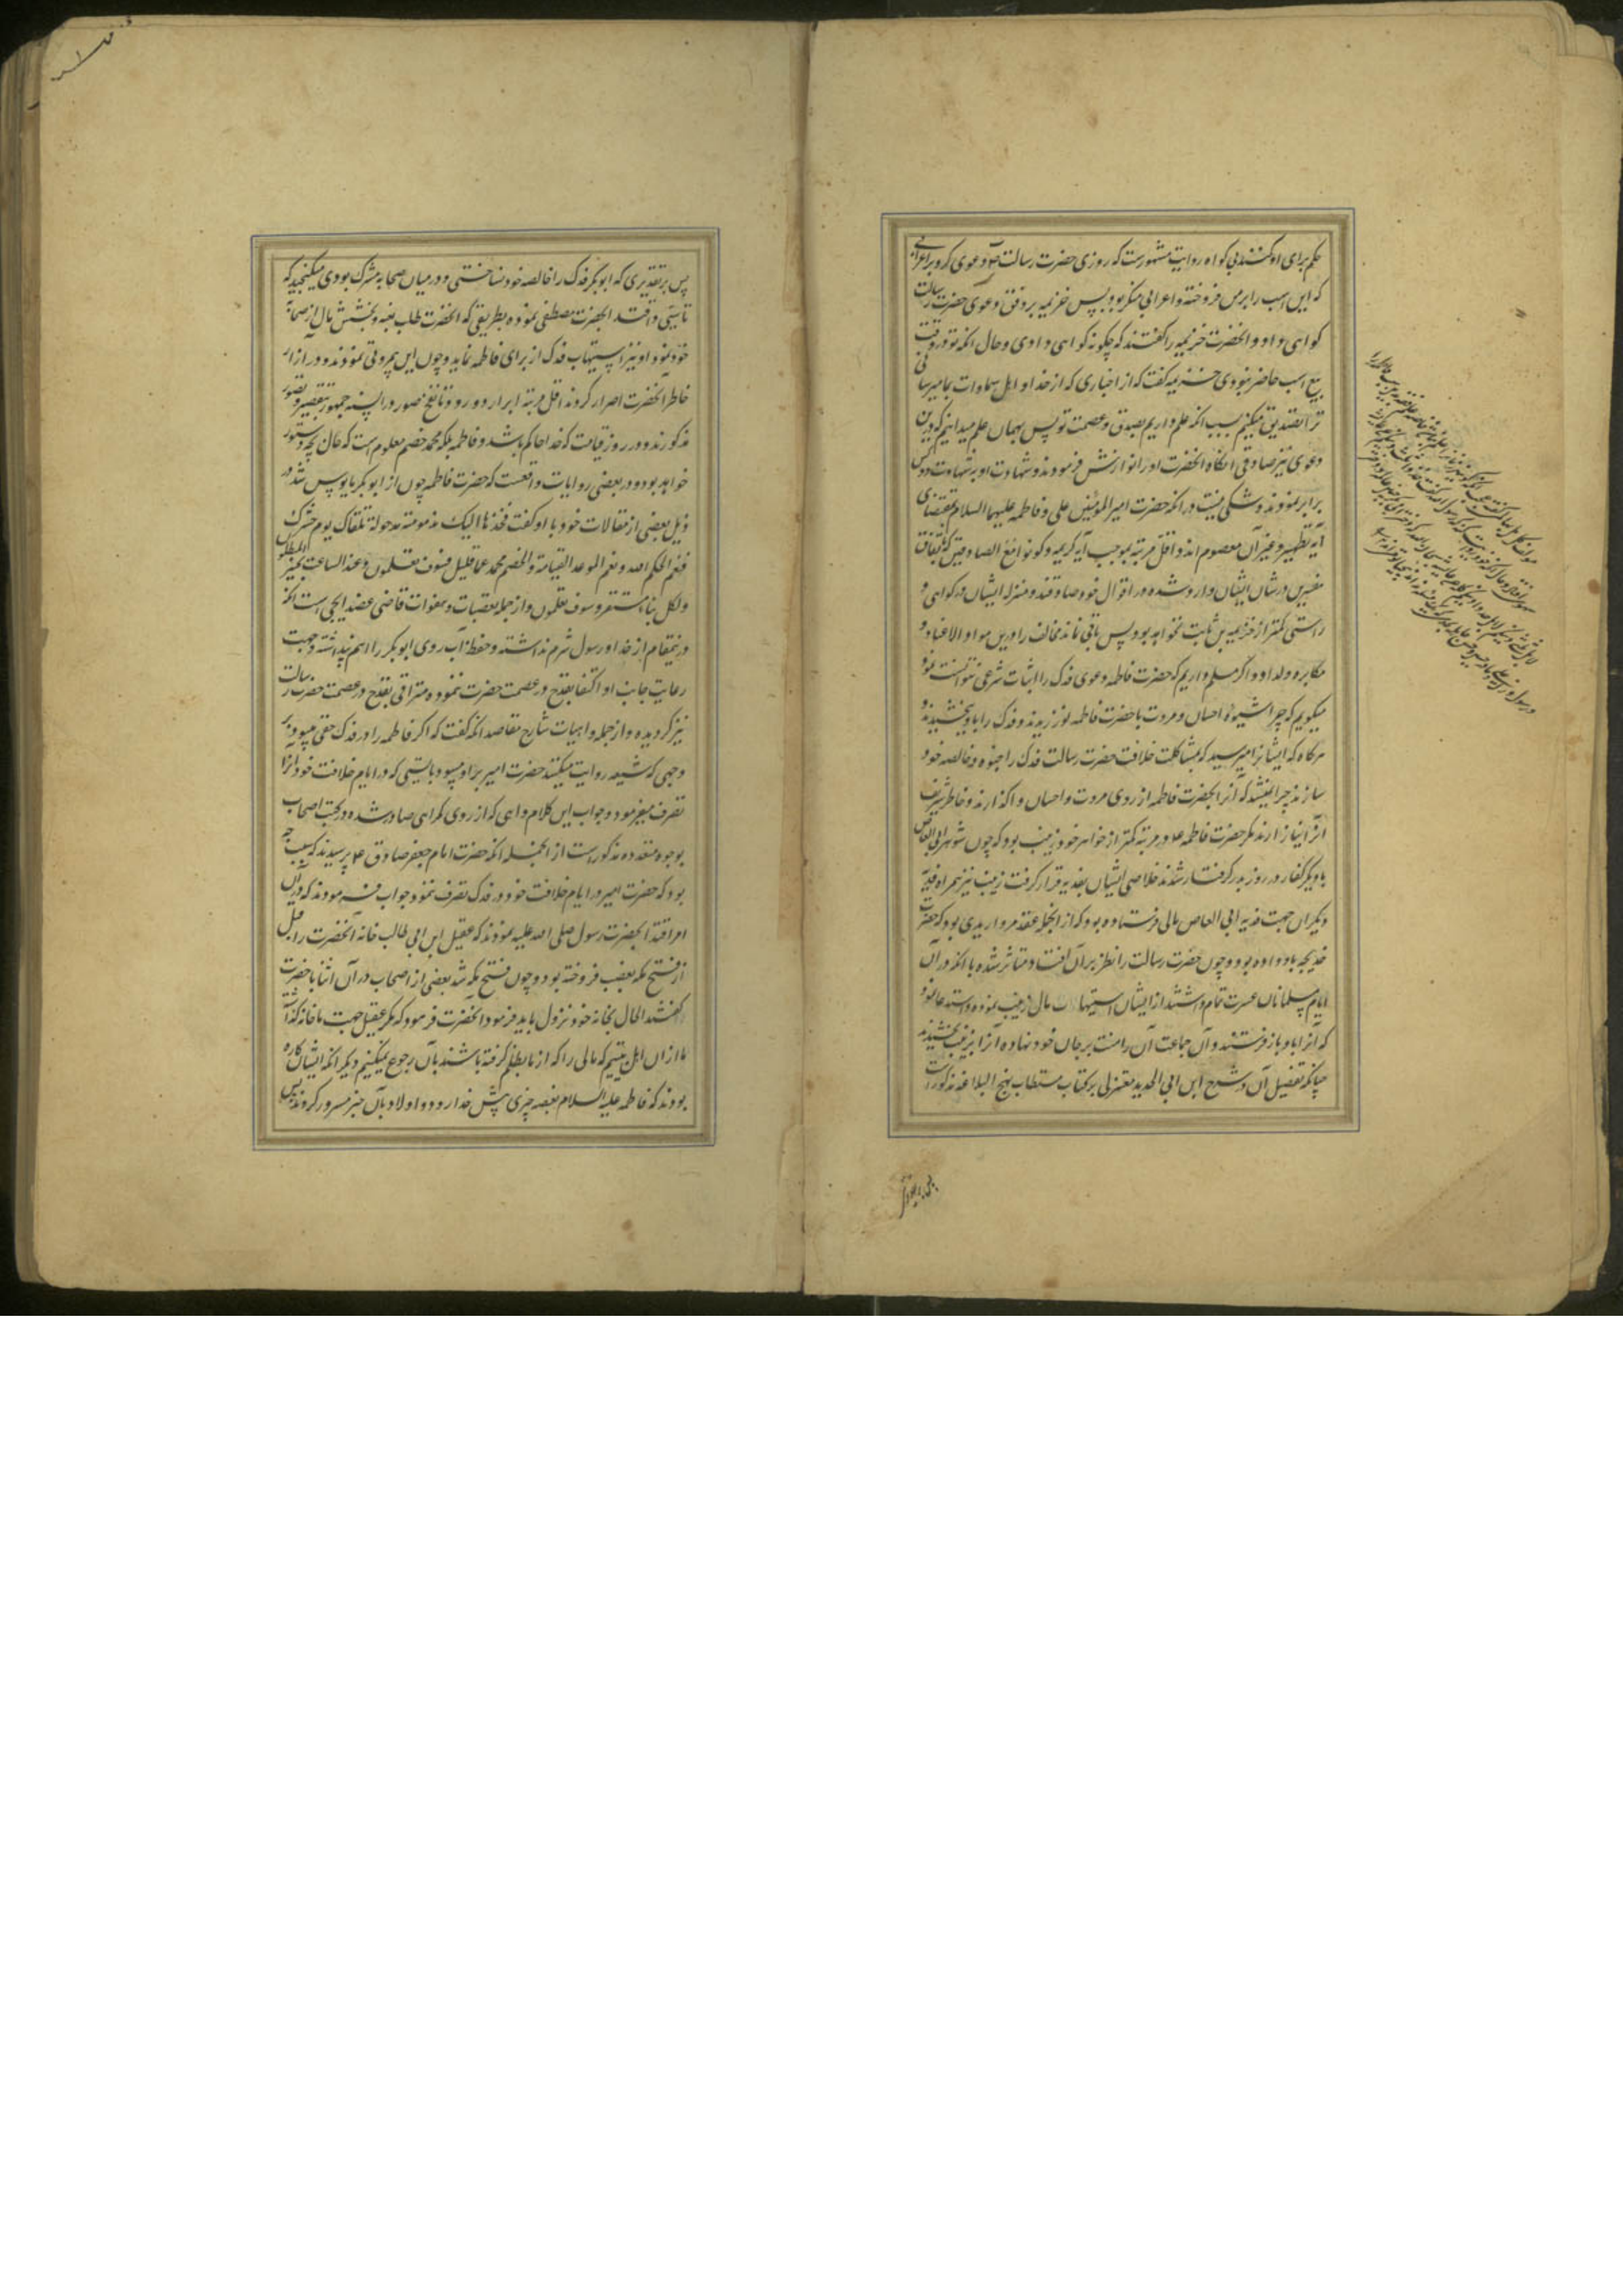 حکم برای او کنند بی کواه روایت مشهورست که روزی حضرت رسالت دعوی کرد بر اعرابی
که این اسب را بر من فروخته و اعرابی منکر بود پس خزیمه بر وفق دعوی حضرت رسالت
کواهی داد و آنحضرت خزیمه را کفتند که چکونه کواهی دادی و حال آنکه تو در وقت
بیع اسب حاضر نبودی خزیمه کفت که از اخباری که از خدا و اهل سماوات بما میرسانی
ترا تصدیق میکنیم بسبب آنکه علم داریم بصدق و عصمت تو پس بهمان علم میدانیم که درین
دعوی نیز صادقی آنکاه آنحضرت او را نوازش فرمودند و شهادت او بشهادت دو کس
برابر نمودند و شکی نیست در آنکه حضرت امیرالمؤمنین علی و فاطمه علیهما السلام بمقتضای
آیه تطهیر و غیر آن معصوم اند و اقل مرتبه بموجب آیه کریمه و کونوا مع الصادقین که باتفاق
مفسرین در شان ایشان وارد شده در اقوال خود صادقند و منزله ایشان در کواهی و
راستی کمتر از خزیمه بن ثابت نخواهد بود پس باقی نماند مخالف را درین مواد الا عناد و
مکابره و لداد و اکر مسلم داریم که حضرت فاطمه دعوی فدک را اثبات شرعی نتوانست نمود
میکویم که چرا شیوه احسان و مروت با حضرت فاطمه نورزیدند و فدک را باو نبخشیدند و
هرکاه که ایشانرا میرسید که بمشاکلت خلافت حضرت رسالت فدک را خالصه خود
سازند چرا نمیشد که آنرا بحضرت فاطمه از روی مروت و احسان واکذارند و خاطر شریف
او را نیازارند مکر حضرت فاطمه در مرتبه کمتر از خواهر خود زینب بود که چون شوهر ابی العاص
با دیکر کفار در روز بدر کرفتار شدند خلاصی ایشان بفدیه قرار کرفت زینب نیز همراه فدیه
دیکران جهت فدیه ابی العاص مالی فرستاده بود که از آنجمله عقد مرواریدی بود که حضرت
خدیجه باو داده بود و چون حضرت رسالت را نظر بر آن افتاد متاثر شده با آنکه در آن
ایام مسلمانان عسرت تمام داشتند از ایشان استیهاب مال زینب نموده و استدعا نمود
که آنرا باو باز فرستند و آن جماعت آن را منت بر جان خود نهاده آنرا بزینب بخشیدند
چنانکه تفصیل آن در شرح ابن ابی الحدید معتزلی بر کتاب مستطاب نهج البلاغه مذکورست
پس بر تقدیری که ابوبکر فدک را خالصه خود نساختی و در میان صحابه مشترک بودی میکنجید که
تاسی و اقتدا بحضرت مصطفی نموده بطریقی که آنحضرت طلب هبه و بخشش مال از صحابه
خود نمود او نیز استیهاب فدک از برای فاطمه نماید و چون این بمروتی نمودند و در آزار
خاطر آنحضرت اصرار کردند اقل مرتبه ابرار دور و تا نفخ صور در السنه جمهور بتقصیر و قصور
مذکورند و در روز قیامت که خدا حاکم باشد و فاطمه بلکه محمد خصم معلوم است که حال بچه دستور
خواهد بود و در بعضی روایات واقعست که حضرت فاطمه چون از ابوبکر مایوس شد در
ذیل بعضی از مقالات خود با او کفت فخذها الیک مزمومة مرحولة تلقاک یوم حشرک
فنعم الحکم الله و نعم الموعد القیامة و الخصم محمد عما قلیل فسوف تعلمون و عند الساعة یخسر المبطلون
و لکل نباء مستقر و سوف تعلمون و از جمله تعصبات و هفوات قاضی عضد ایجی است آنکه
در ینمقام از خدا و رسول شرم نداشته و حفظ آب روی ابوبکر را اهم پنداشته و جهت
رعایت جانب او اکتفا بقدح در عصمت حضرت ننموده مترقی بقدح در عصمت حضرت رسالت
نیز کردیده و از جمله واهیات شارح مقاصد آنکه کفت که اکر فاطمه را در فدک حقی میبود بر
وجهی که شیعه روایت میکنند حضرت امیر برآن میبود بایستی که در ایام خلافت خود آنرا
تصرف میفرمود و جواب این کلام واهی که از روی کمراهی صادر شده در کتب اصحاب
بوجوه متعدده مذکورست از آنجمله آنکه حضرت امام جعفر صادق ع پرسیدند که سبب چه
بود که حضرت امیر در ایام خلافت خود در فدک تصرف ننمود جواب فرمودند که در آن
امر اقتدا بحضرت رسول صلی الله علیه نمودند که عقیل ابن ابی طالب خانه آنحضرت را قبل
از فتح مکه بغصب فروخته بود و چون فتح مکه شد بعضی از اصحاب در آن اثنا با حضرت
کفتند الحال بخانه خود نزول باید فرمود آنحضرت فرمود که مکر عقیل جهت ما خانه کذاشت
ما از ان اهل بیتیم که مالی را که از ما بظلم کرفته باشند بآن رجوع نمیکنیم دیکر آنکه ایشان کاره
بودند که فاطمه علیه السلام بغصه چیزی پیش خدا رود و اولاد بآن چیز مسرور کردند پس